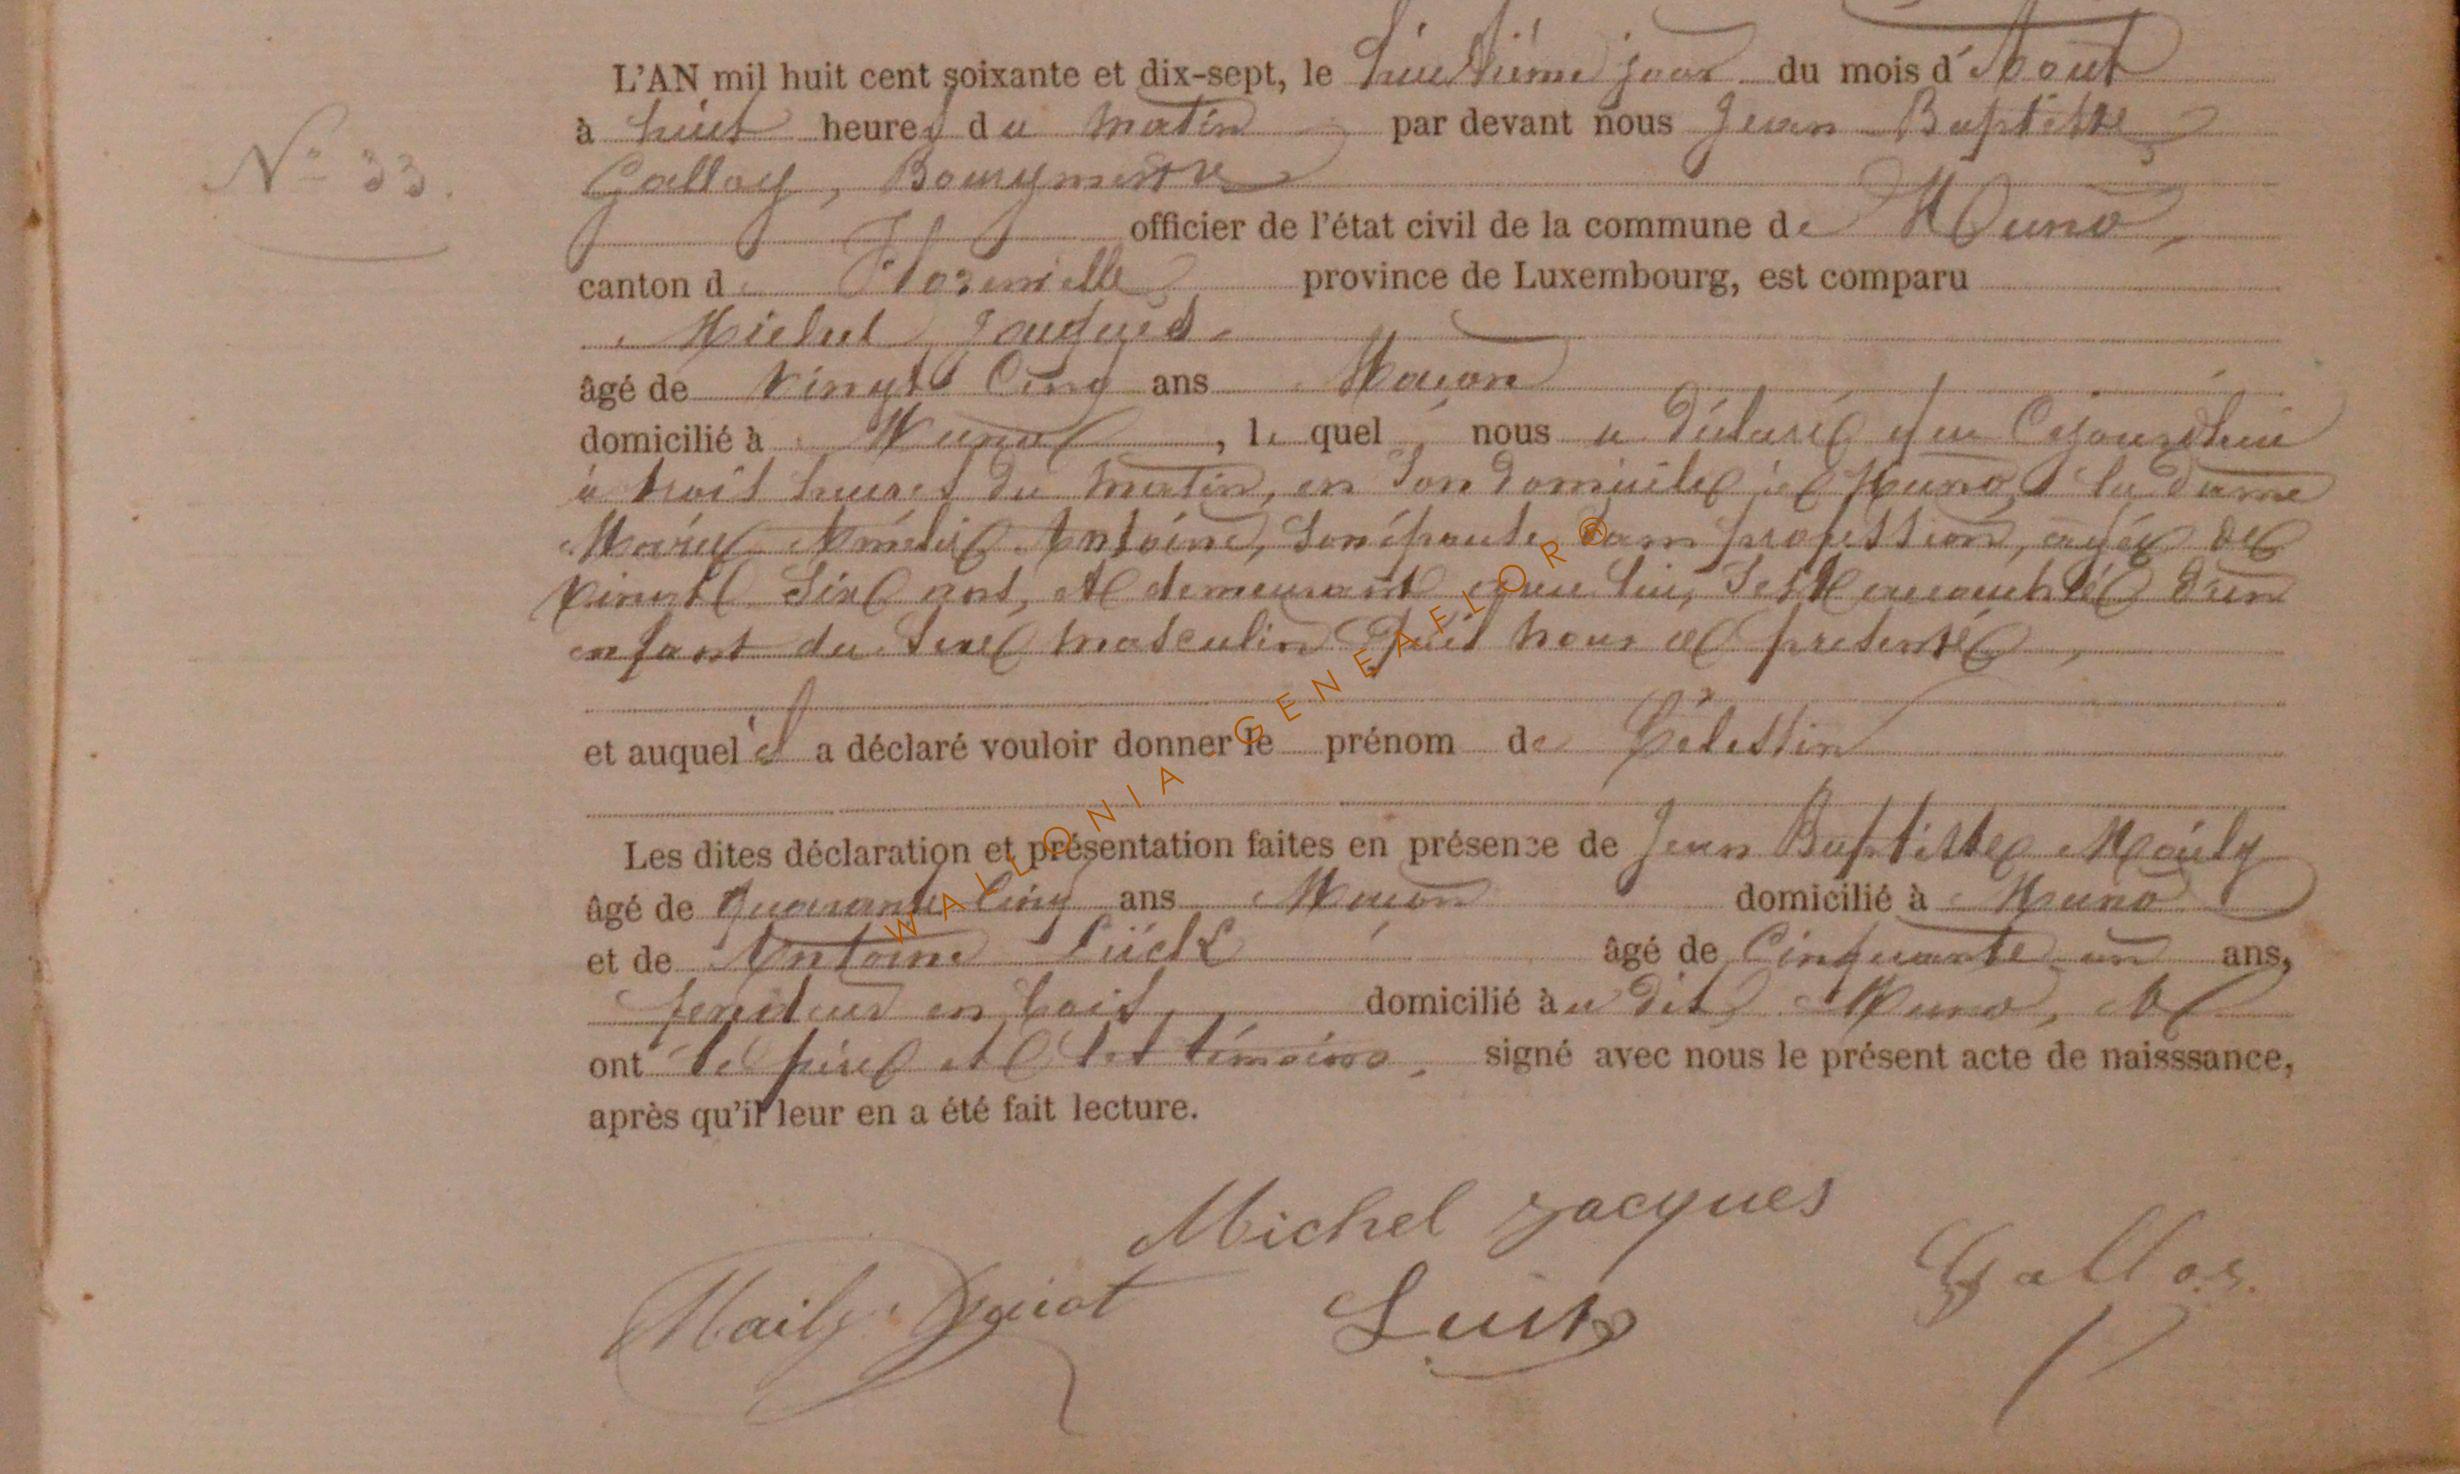 L'AN mil huit cent soixante et dix-sept, le huitième jour du mois d'Aout
N° 33.
à huit heures du matin par devant nous Jean Baptiste
Galloy, Bourgmestre
officier de l'état civil de la commune de Muno,
canton de Florenville province de Luxembourg, est comparu
Michel Jacques
âgé de vingt cinq ans Maçon
domicilié à Muno, le quel nous a déclaré que Cejourdhui
à trois heures du matin, en son domicile à Muno, la dame
Marie Amélie Antoine, son épouse, sans profession, agée de
vingt six ans, et demeurant avec lui, est accouchée d'un
enfant du sexe masculin qu'il nous a presenté,
et auquel il a déclaré vouloir donner le prénom de Célestin
Les dites déclaration et présentation faites en présence de Jean Baptiste Maily
âgé de quarante cinq ans Maçon domicilié à Muno
et de Antoine âgé de Cinquante un ans,
fendeur en bois domicilié au dit Muno, et
ont le père et les témoins, signé avec nous le présent acte de naisssance,
après qu'il leur en a été fait lecture.
Michel Jacques
Maily
WALLONIA - GENEAFLOR®